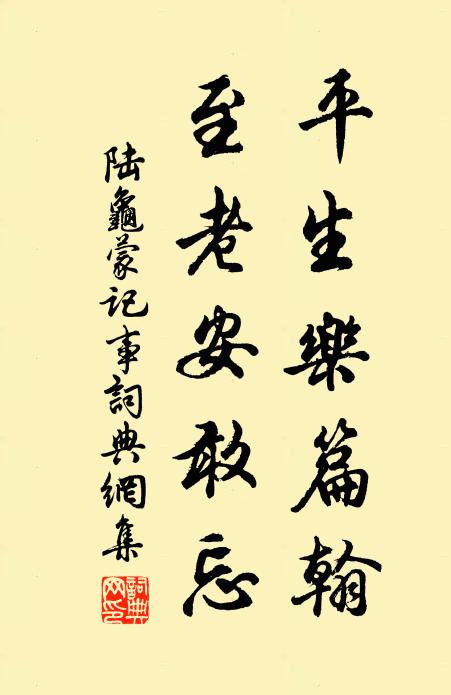 平生樂篇翰
至老安敢忘
陸龜蒙記事詞典網集